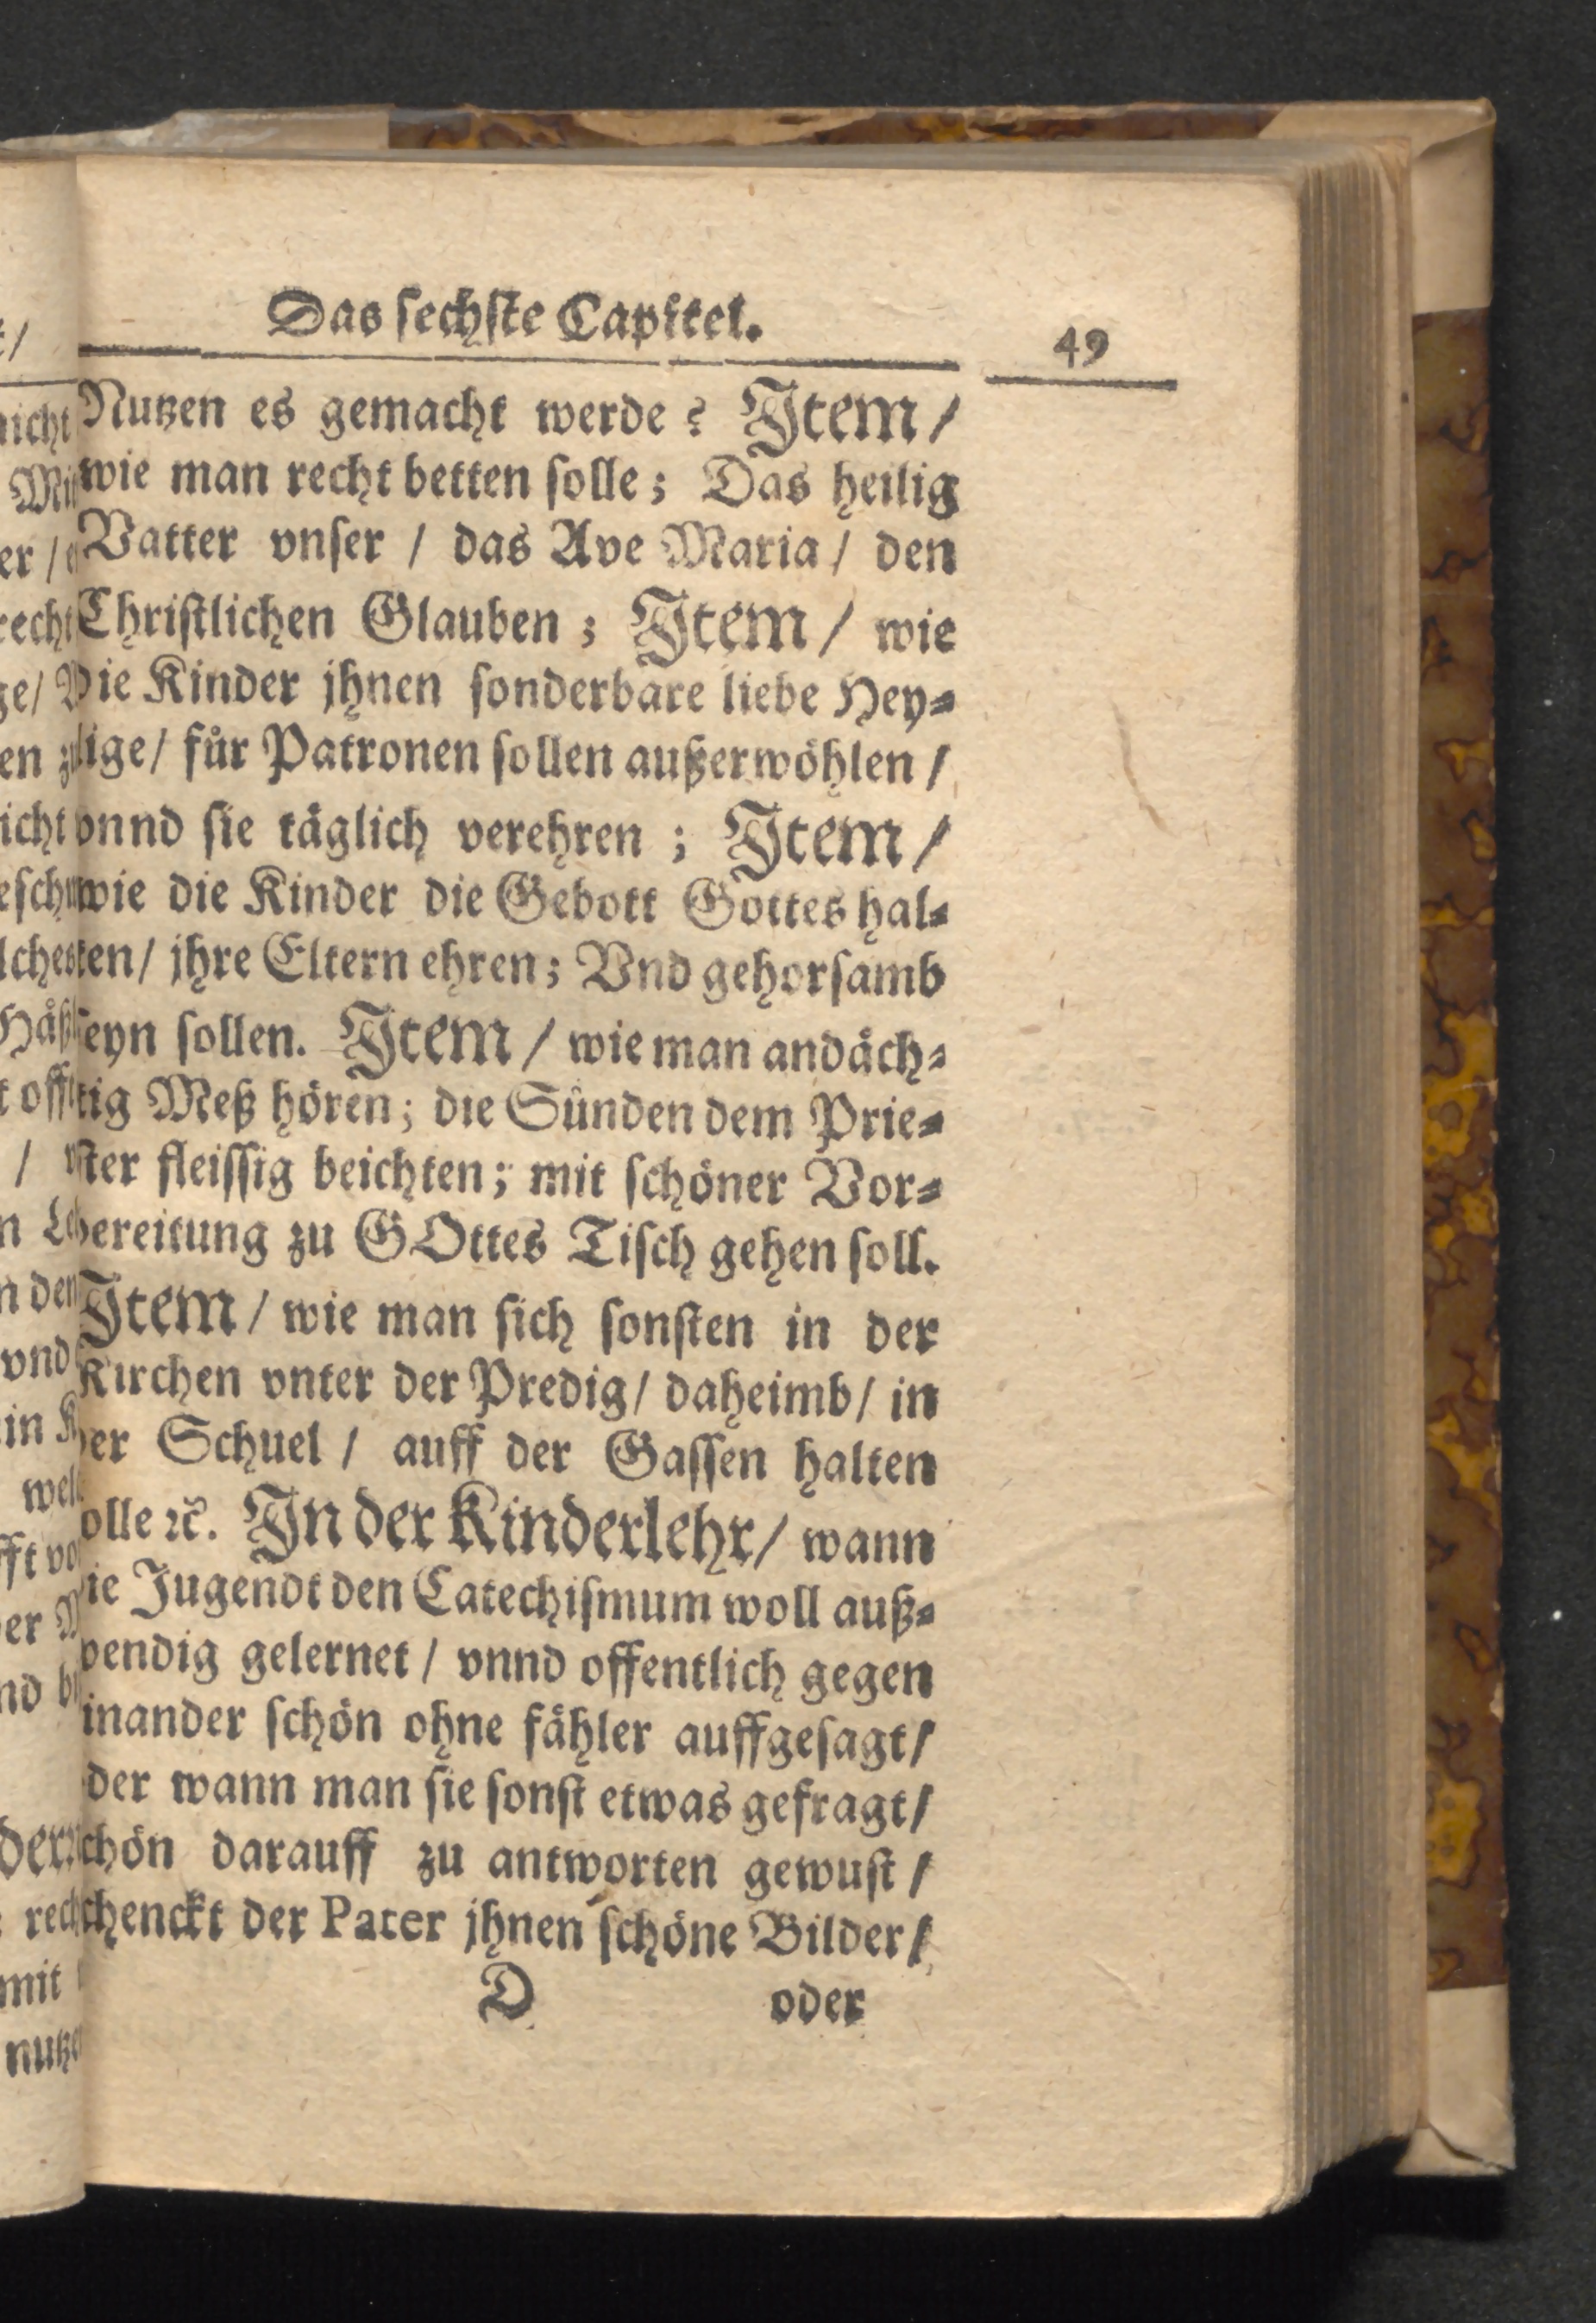 Das sechste Capitel.
49
Nutzen es gemacht werde? Item/
wie man recht betten solle; Das heilig
Vatter vnser / das Ave Maria / den
Christlichen Glauben; Item / wie
die Kinder jhnen sonderbare liebe Hey-
lige/ für Patronen sollen außerwöhlen /
vnnd sie täglich verehren; Item /
wie die Kinder die Gebott Gottes hal-
ten/ jhre Eltern ehren; Vnd gehorsamb
seyn sollen. Item / wie man andäch-
tig Meß hören; die Sünden dem Prie-
ster fleissig beichten; mit schöner Vor-
bereitung zu GOttes Tisch gehen soll.
Item / wie man sich sonsten in der
Kirchen vnter der Predig/ daheimb/ in
der Schuel / auff der Gassen halten
solle ꝛc. In der Kinderlehr/ wann
die Jugendt den Catechismum woll auß-
wendig gelernet / vnnd offentlich gegen
einander schön ohne fähler auffgesagt/
oder wann man sie sonst etwas gefragt/
schön darauff zu antworten gewust /
schenckt der Pater jhnen schöne Bilder/
D oder